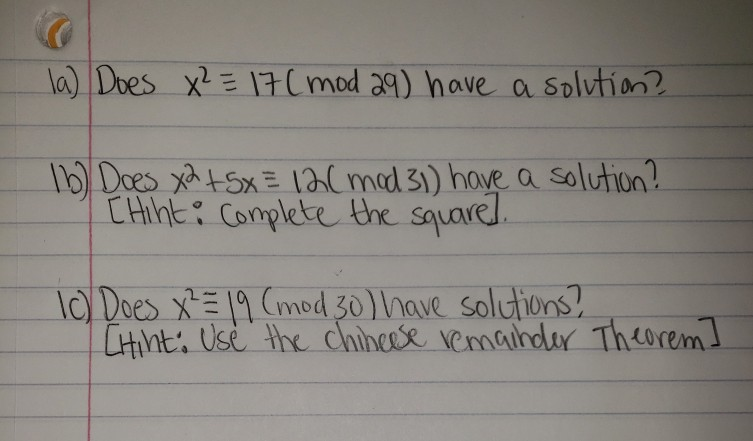 1a) Does x² ≡ 17 (mod 29) have a solution?
1b) Does x²+5x ≡ 12 (mod 31) have a solution?
[Hiht: Complete the square].
1c) Does x² ≡ 19 (mod 30) have solutions?
[Hiht: Use the chiheese remaihder Theorem]